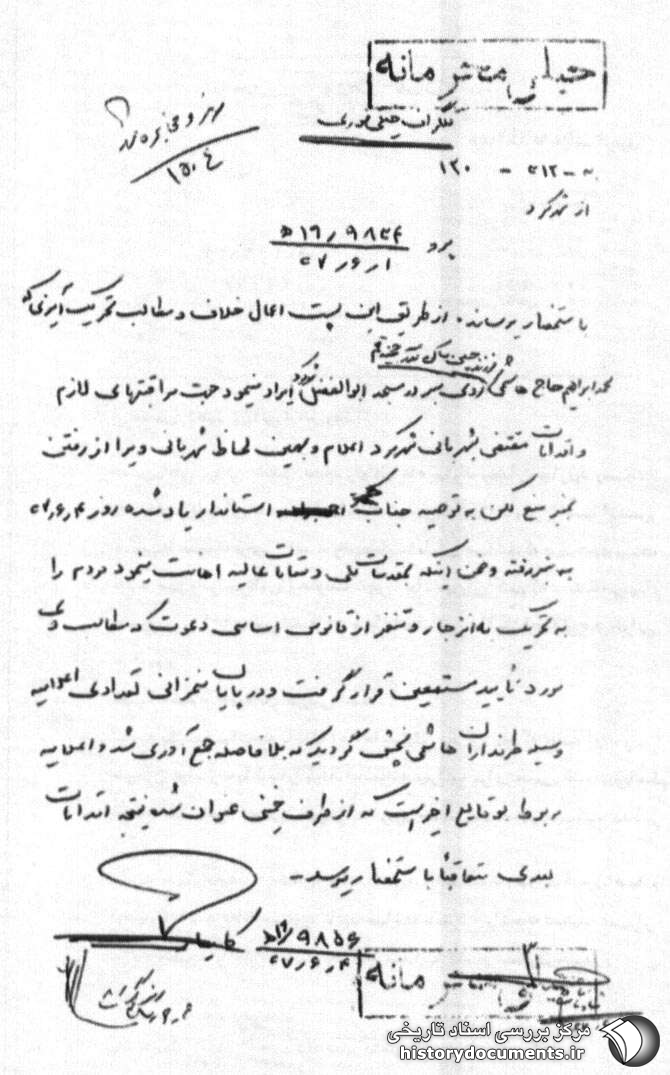 خیلی محرمانه
تلگراف خیلی فوری
از شهرکرد
برد ۹۸۳۴ / ۱۹ ﻫ
باستحضار میرساند. از طریق این پست اعمال خلاف و مطالب تحریک آمیزی که
محمد ابراهیم حاج هاشمی روی منبر در مسجد ابوالفضل ایراد مینمود جهت مراقبتهای لازم
و اقدامات مقتضی بشهربانی شهرکرد اعلام و بهمین لحاظ شهربانی ویرا از رفتن
بمنبر منع لکن به توصیه جناب استاندار یاد شده روز ۲۷٫۶٫۴
به منبر رفته و ضمن اینکه بمقدسات ملی و مقامات عالیه اهانت مینمود مردم را
به تحریک به انزجار و تنفر از قانون اساسی دعوت که مطالب وی
مورد تأیید مستمعین قرار گرفت و در پایان سخنرانی تعدادی اعلامیه
وسیله طرفداران هاشمی پخش گردید که بلافاصله جمع آوری شد و اعلامیه
مربوط بوقایع اخیر است که از طرف خمینی عنوان شده نتیجه اقدامات
بعدی متعاقباً باستحضار میرسد -
۹۸۵۶
۲۷٫۶٫۴
خیلی محرمانه
مرکز بررسی اسناد تاریخی
historydocuments.ir